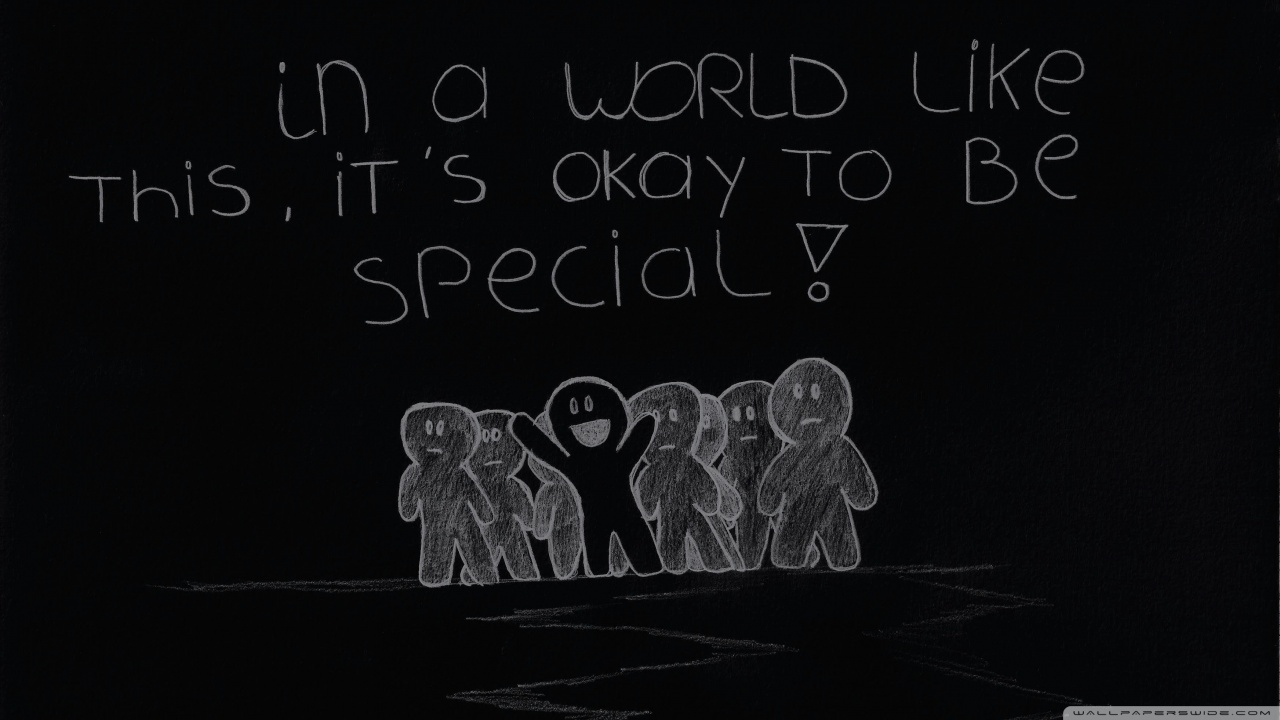 in a WORLD Like
This, iT's okay TO Be
special!
WALLPAPERSWIDE.COM